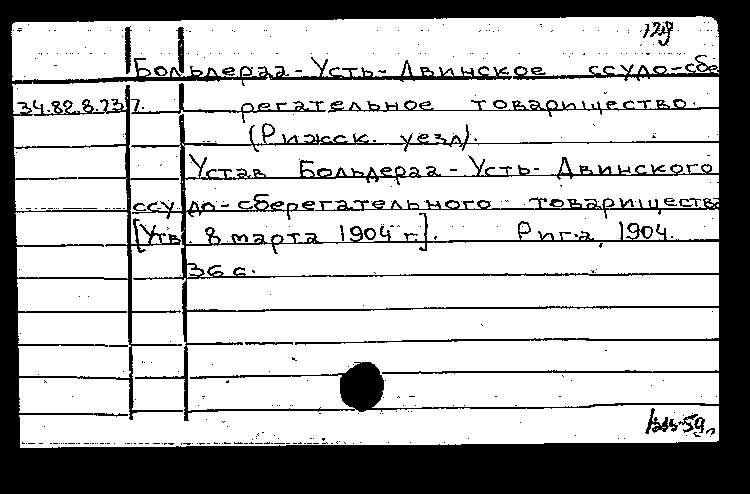 129
Больдераа-Усть-Двинское ссудо-сбе
34.82.8.237. регательное товарищество.
(Рижск. уезд).
Устав Больдераа-Усть-Двинского
ссудо-сберегательного товарищества
[Утв. 8 марта 1904 г.]. Рига, 1904.
36 с.